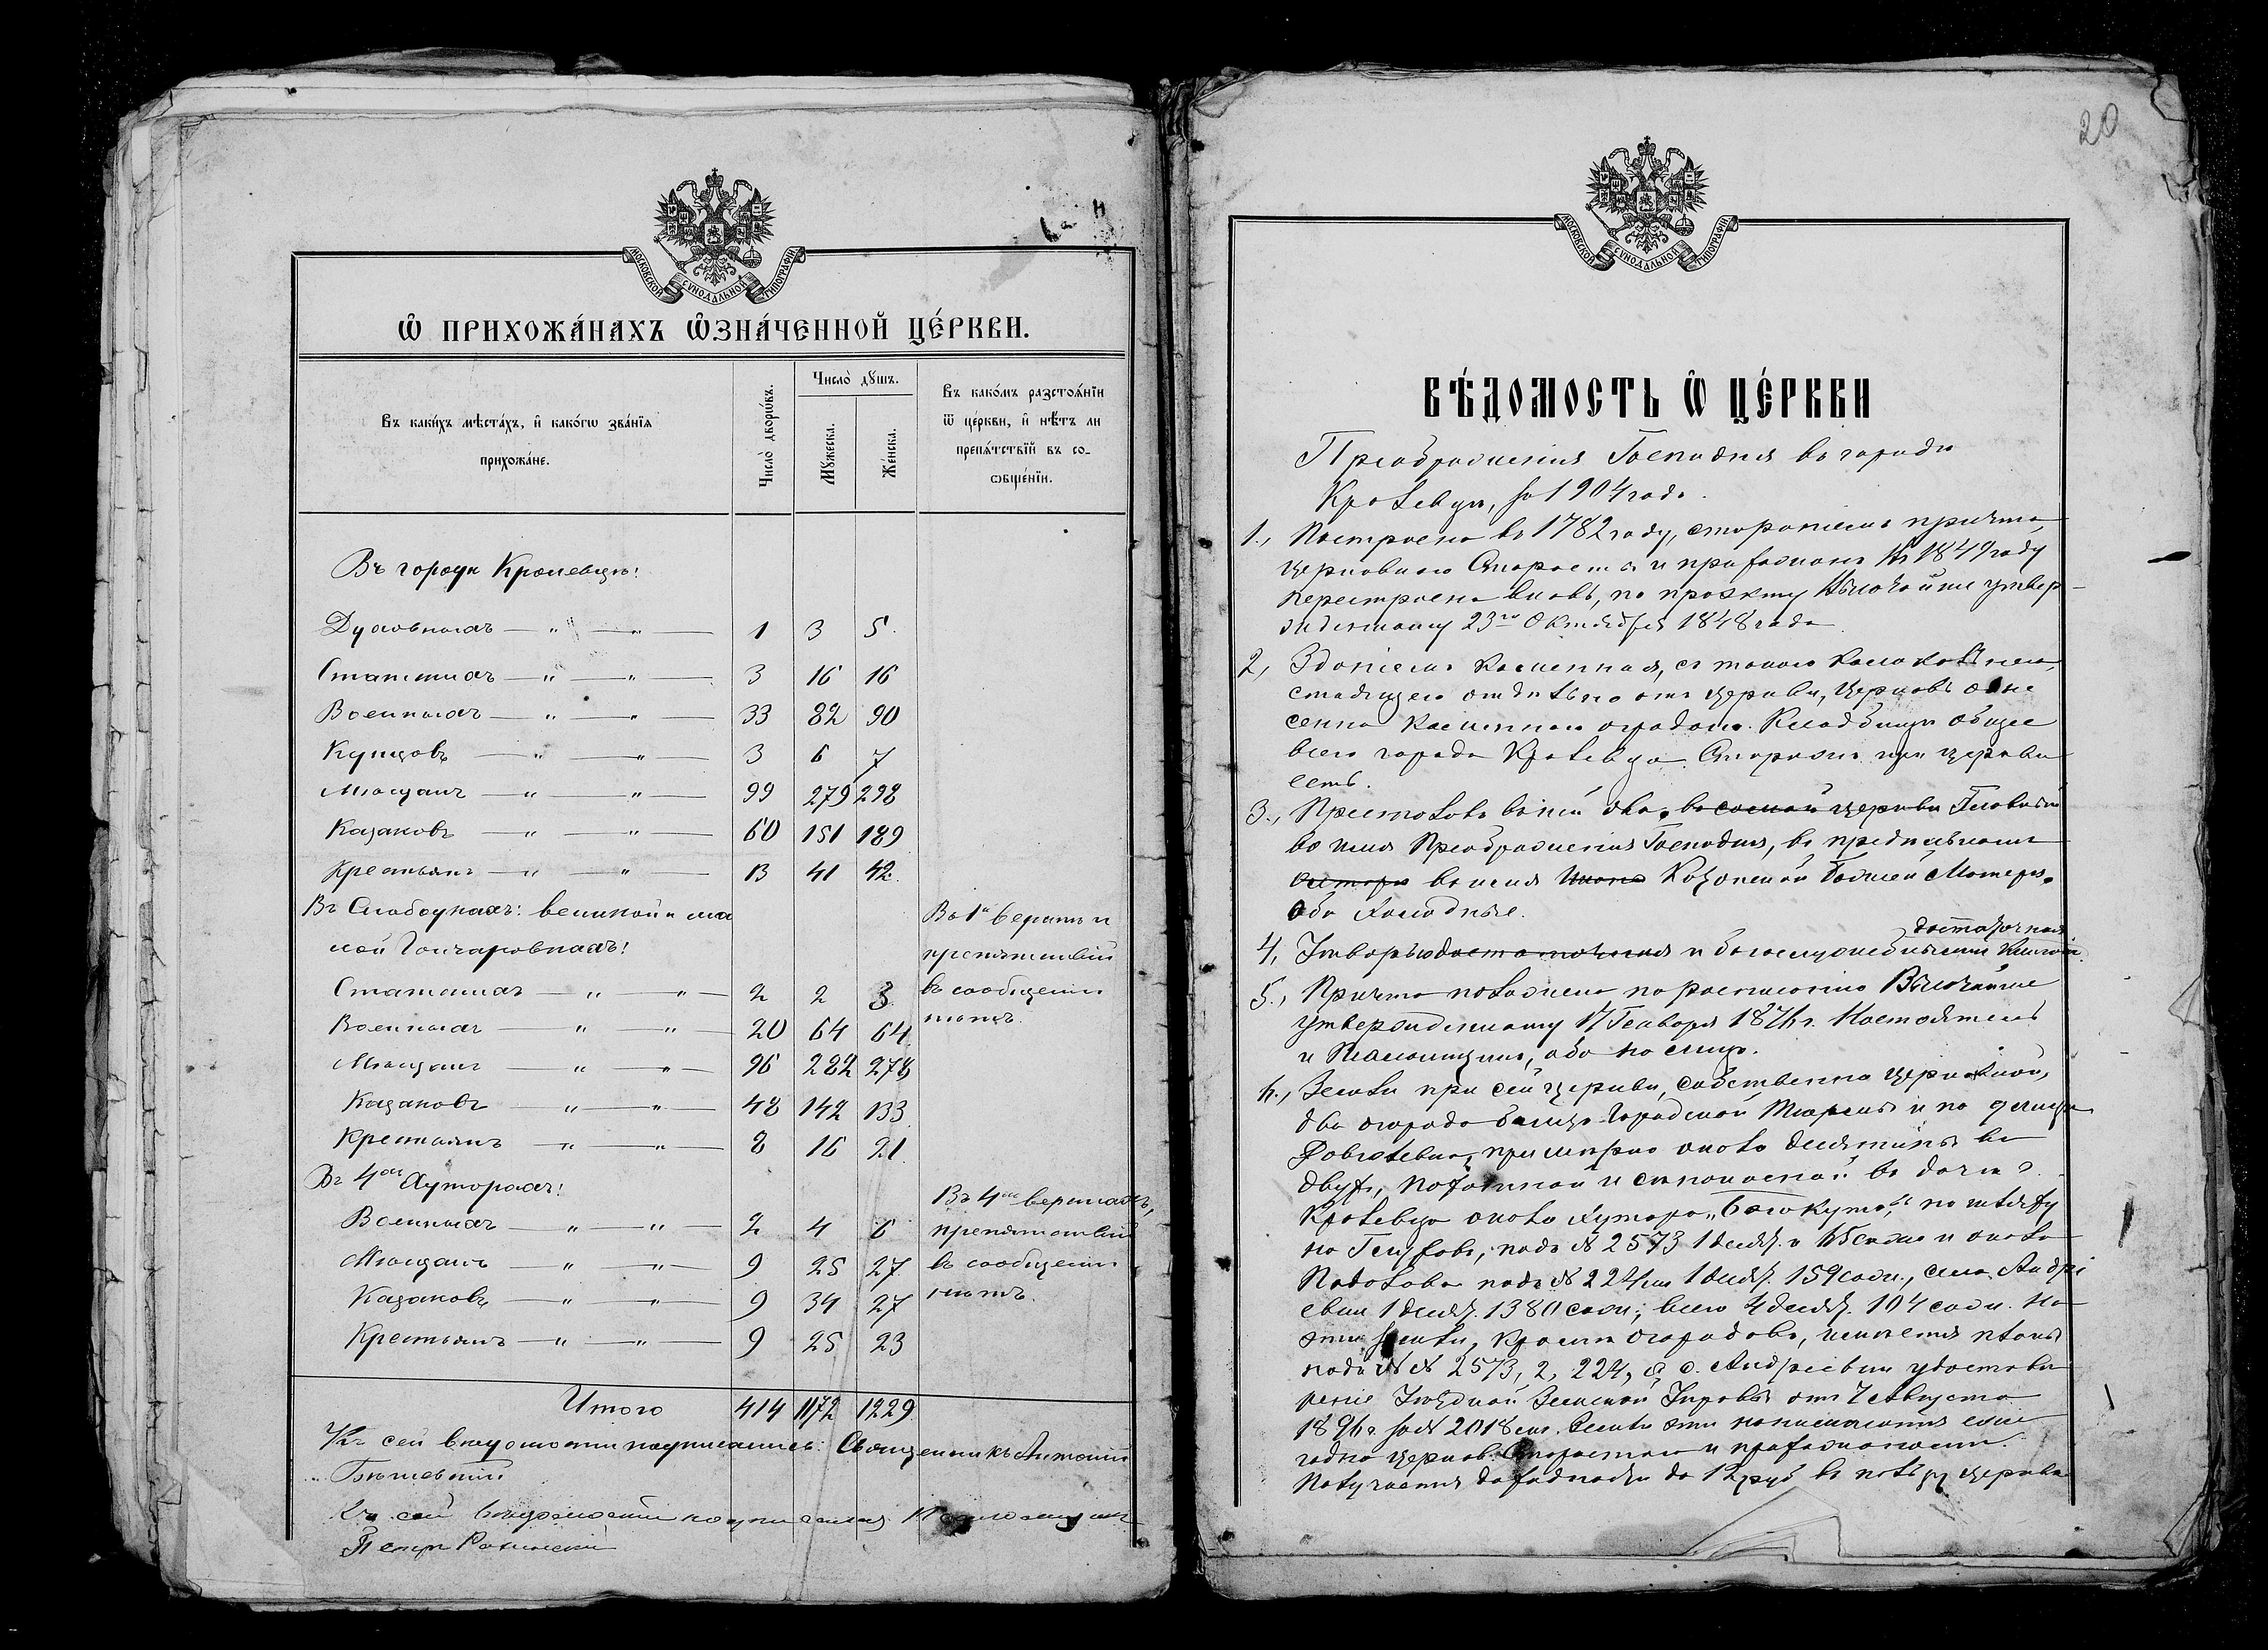 МОСКОВСКОЙ СѴНОДАЛЬНОЙ ТИПОГРАФІИ
Ѽ ПРИХОЖА́НАХЪ Ѽ҆ЗНА́ЧЕННОЙ ЦЕ́РКВИ.
Въ каки́хъ мѣста́хъ, и҆ како́гѡ зва́нїѧ прихожа́не.
Число̀ дворѡ́въ.
Число̀ дꙋ́шъ.
Мꙋ́жеска.
Же́нска.
Въ како́мъ разстоѧ́нїи ѿ це́ркви, и҆ нѣ́тъ ли препѧ́тствїй въ со-ѻбще́нїи.
Въ городѣ Кролевцѣ:
Духовныхъ — " — " — 1 3 5.
Статскихъ — " — " — 3 16 16
Военныхъ — " — " — 33 82 90
Купцовъ — " — " — 3 6 7
Мѣщанъ — " — " — 99 279 298
Казаковъ — " — " — 60 151 189
Крестьянъ — " — " — 13 41 42.
Въ Слободкахъ: великой и ма
лой Гончаровкахъ:
Въ 1й верстѣ и
препятствій
въ сообщеніи
нѣтъ.
Статскихъ — " — " — 2 2 3.
Военныхъ — " — " — 20 64 64
Мѣщанъ — " — " — 96 282 278
Казаковъ — " — " — 48 142 133
Крестьянъ — " — " — 8 16 21.
Въ 4хъ Хуторахъ:
Въ 4хъ верстахъ,
препятствій
въ сообщеніи
нѣтъ.
Военныхъ — " — " — 2 4 6
Мѣщанъ — " — " — 9 25 27
Казаковъ — " — " — 9 34 27
Крестьянъ — " — " — 9 25 23
Итого 414 1172 1229.
Къ сей вѣдомости подписались: Священникъ Антоній
Къ сей вѣдомости подписался Псаломщикъ
Петръ
20
МОСКОВСКОЙ СѴНОДАЛЬНОЙ ТИПОГРАФІИ
ВѢ́ДОМОСТЬ Ѽ ЦЕ́РКВИ
Преображенія Господня въ городѣ
Кролевцѣ, за 1904 годъ.
1., Построена въ 1782 году, стараніемъ причта,
церковнаго Старосты и прихожанъ въ 1849 году
перестроена вновь, по проэкту Высочайше утвер-
жденному 23го Октября 1848 года.
2, Зданіемъ каменная, съ такою колокольнею,
стоящею отдѣльно отъ церкви, Церковь обне
сена каменною оградою. Кладбище общее
всего города Кролевца. Сторожка при церкви
есть.
3., Престоловъ въ ней два, въ самой церкви Главный
во имя Преображенія Господня, въ придѣльномъ
во имя Казанской Божіей Матери.
Оба холодные.
4, Утварью достаточная и богослужебными книгами достаточная
5., Причта положено по росписанію Высочайше
утвержденному 17 Генваря 1876 г. Настоятель
и Псаломщикъ, оба на лицо.
6., Земли при сей церкви, собственно церковной,
два огорода близъ Городской Тюрьмы и по улицѣ
примѣрно около десятины въ
двухъ, пахатной и сѣнокосной въ дачѣ г.
Кролевца около хутора по шляху
на Глуховъ, подъ № 2573 1 десят. и около
подъ № 224мъ 1 десят. 159 саж., села Андрі
евки 1 десят. 1380 саж.; всего 4 десят. 104 саж. На
эти земли, кромѣ огородовъ, имѣются планы
подъ №№ 2573, 2, 224, а с. Андріевки удостовѣ
реніе Уѣздной Земской Управы отъ 7 Августа
1896 г. за № 2018мъ. Земли эти
церков. Старостою и прихожанами.
Получается доходности до 12 руб въ пользу церкви